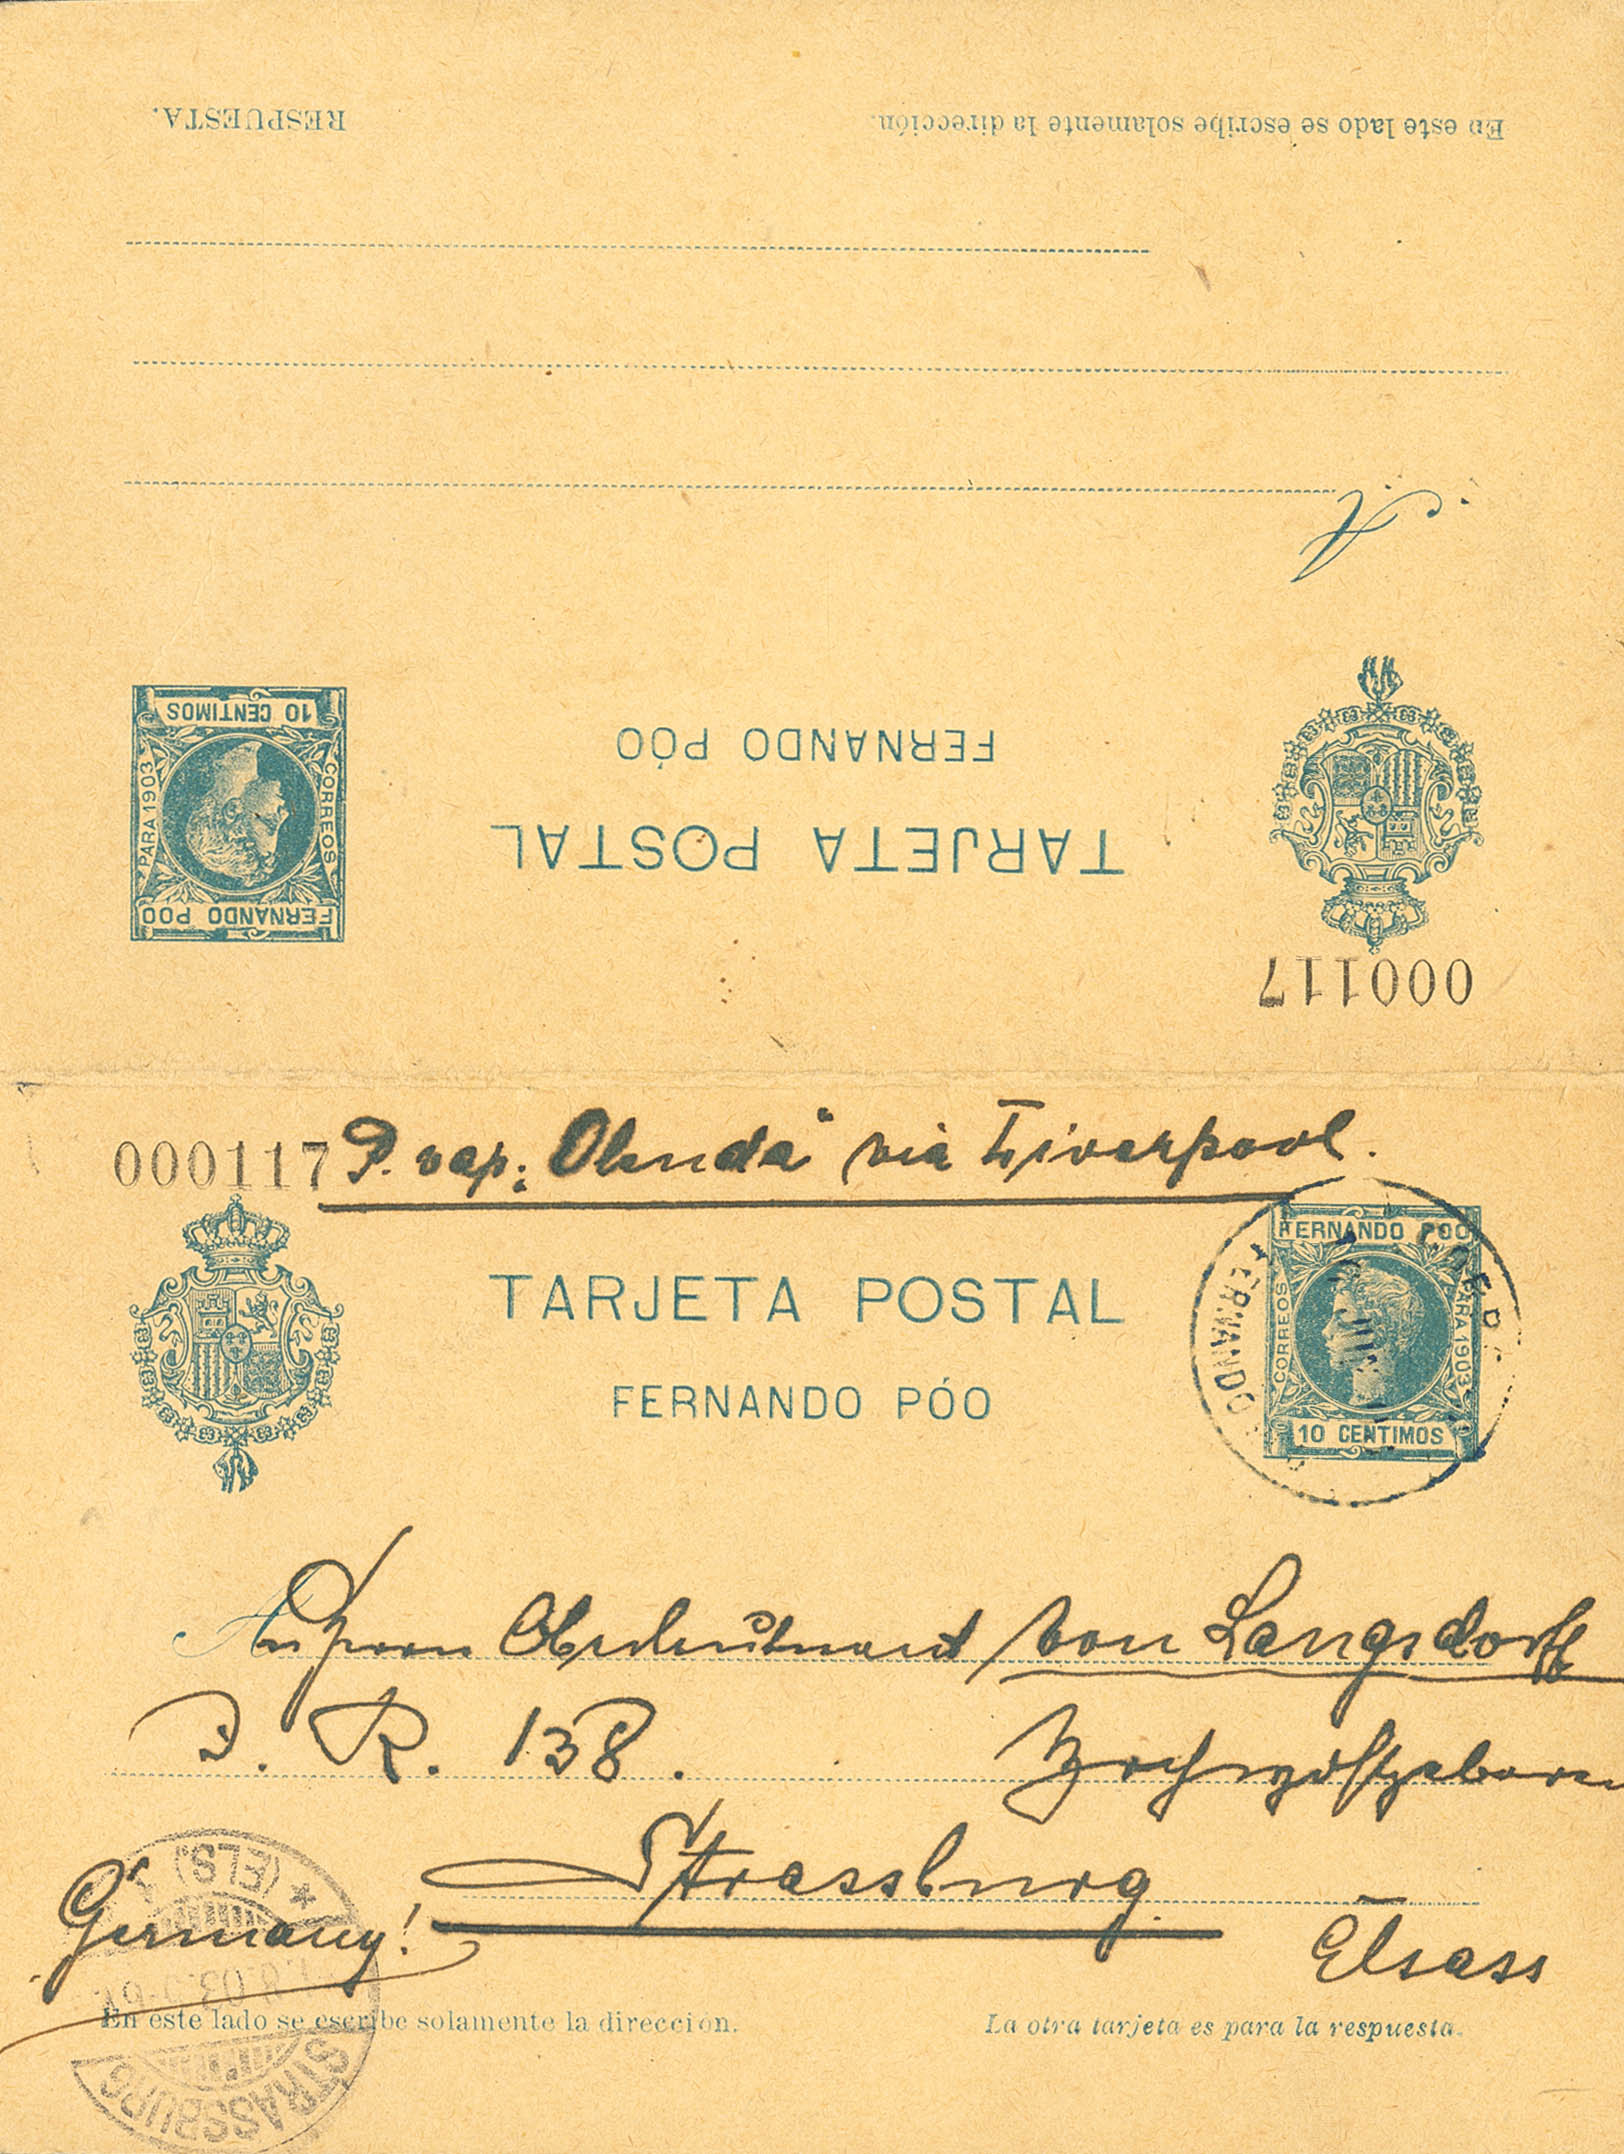 RESPUESTA.
En este lado se escribe solamente la dirección.
A
10 CENTIMOS
PARA 1903
CORREOS
FERNANDO POO
FERNANDO PÓO
TARJETA POSTAL
000117
000117 P. vap: "Olenda" via Liverpool.
TARJETA POSTAL
FERNANDO PÓO
FERNANDO POO
CORREOS
PARA 1903
10 CENTIMOS
FERNANDO
An Herrn Oberleutnant von Langsdorff
I. R. 138. Hochwohlgeboren
Strassburg
Germany! Elsass
(ELS)
STRASSBURG
En este lado se escribe solamente la direccion.
La otra tarjeta es para la respuesta.